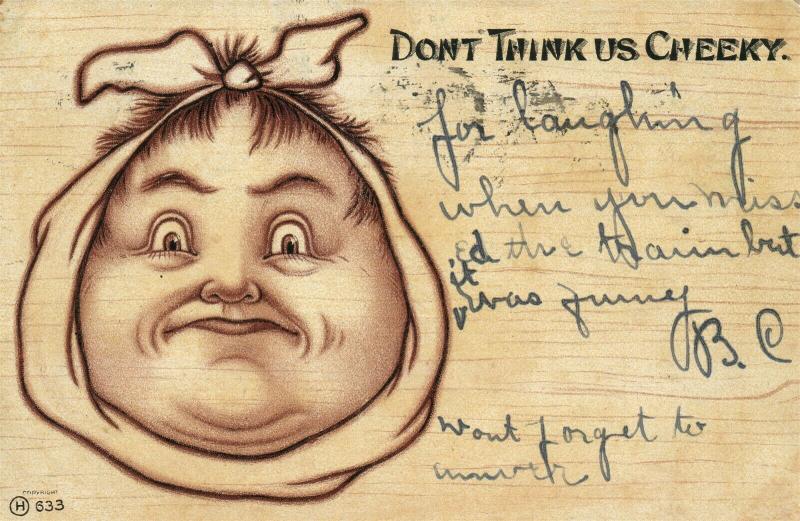 DONT THINK US CHEEKY.
for laughing
when you miss
ed the train but
it was funny
B. C
wont forget to
answer
COPYRIGHT
H 633